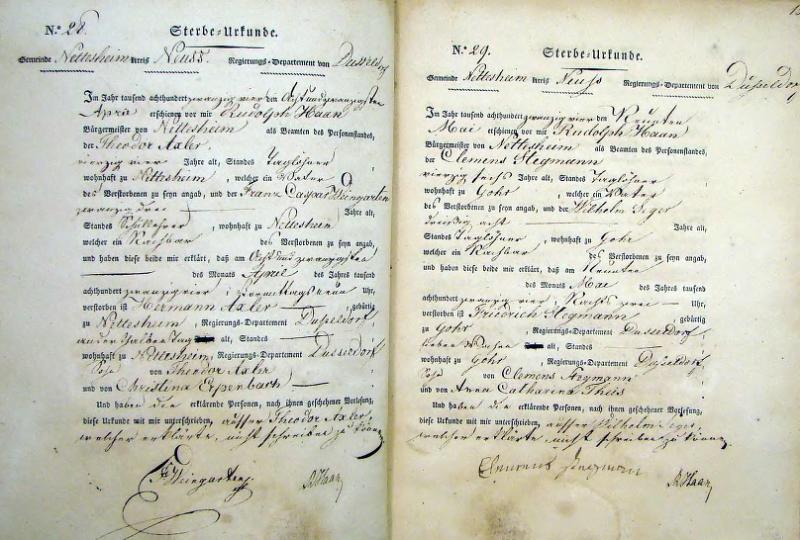 N.º 28.
Sterbe-Urkunde.
Gemeinde Nettesheim Kreis Neuss. Regierungs-Departement von Dusseldorf
Im Jahr tausend achthundert zwanzig vier den Acht und zwanzigsten
April erschienen vor mir Rudolph Haan
Bürgermeister von Nettesheim als Beamten des Personenstandes,
der Theodor Axler.
vierzig vier Jahre alt, Standes Taglöhner
wohnhaft zu Nettesheim, welcher ein Vater
des Verstorbenen zu seyn angab, und der Franz Caspar Weingarten
zwanzig drei Jahre alt,
Standes Schullehrer, wohnhaft zu Nettesheim
welcher ein Nachbar des Verstorbenen zu seyn angab,
und haben diese beide mir erklärt, daß am Acht und zwanzigsten
des Monats April des Jahres tausend
achthundert zwanzig vier, Vormittags neun Uhr,
verstorben ist Hermann Axler, gebürtig
zu Nettesheim, Regierungs-Departement Dusseldorf,
alt, Standes
wohnhaft zu Nettesheim, Regierungs-Departement Dusseldorf
Sohn von Theodor Axler
und von Christina Erpenbach
Und haben die erklärende Personen, nach ihnen geschehener Vorlesung,
diese Urkunde mit mir unterschrieben, ausser Theodor Axler,
welcher erklärte, nicht schreiben zu können
Weingarten
R Haan
N.º 29.
Sterbe-Urkunde.
Gemeinde Nettesheim Kreis Neuss Regierungs-Departement von Düsseldorf
Im Jahr tausend achthundert zwanzig vier den Neunten
Mai erschienen vor mir Rudolph Haan
Bürgermeister von Nettesheim als Beamten des Personenstandes,
der Clemens Stegmann
vierzig sechs Jahre alt, Standes Taglöhner
wohnhaft zu Gohr, welcher ein Vater
des Verstorbenen zu seyn angab, und der Wilhelm Seger
dreißig acht Jahre alt,
Standes Taglöhner, wohnhaft zu Gohr
welcher ein Nachbar des Verstorbenen zu seyn angab,
und haben diese beide mir erklärt, daß am Neunten
des Monats Mai des Jahres tausend
achthundert zwanzig vier, Nachts zwei Uhr,
verstorben ist Friedrich Stegmann, gebürtig
zu Gohr, Regierungs-Departement Dusseldorf,
sieben Wochen alt, Standes
wohnhaft zu Gohr, Regierungs-Departement Dusseldorf,
Sohn von Clemens Stegmann
und von Anna Catharina Theis
Und haben die erklärende Personen, nach ihnen geschehener Vorlesung,
diese Urkunde mit mir unterschrieben, ausser Wilhelm Seger,
welcher erklärte, nicht schreiben zu können.
Clemens Stegman
R Haan